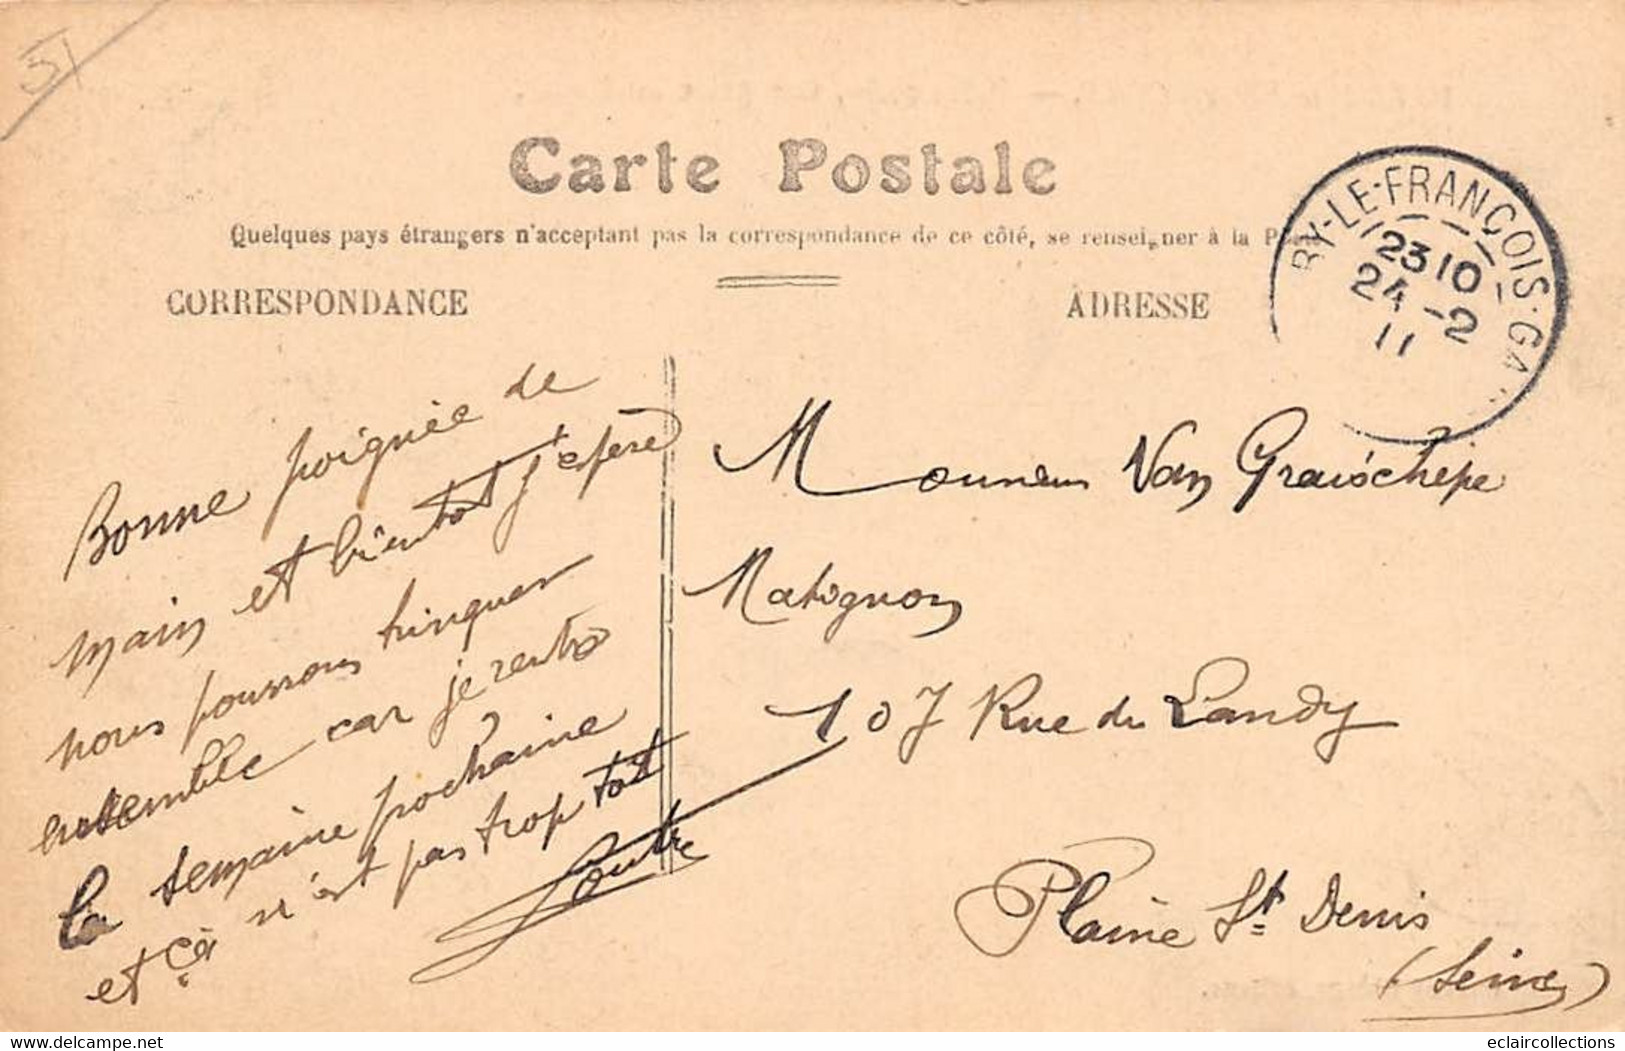 51
Carte Postale
Quelques pays étrangers n'acceptent pas la correspondance de ce côté, se renseigner à la Poste
CORRESPONDANCE
ADRESSE
RY-LE-FRANÇOIS-GA
23 10
24 -2
11
Bonne poignée de
main et bientot j'espère
nous pourrons trinquer
ensemble car je rentre
la semaine prochaine
et çà n'est pas trop tot
Monsieur Van
Matignon
107 Rue du Landy
Plaine St Denis
(Seine)
eclaircollections